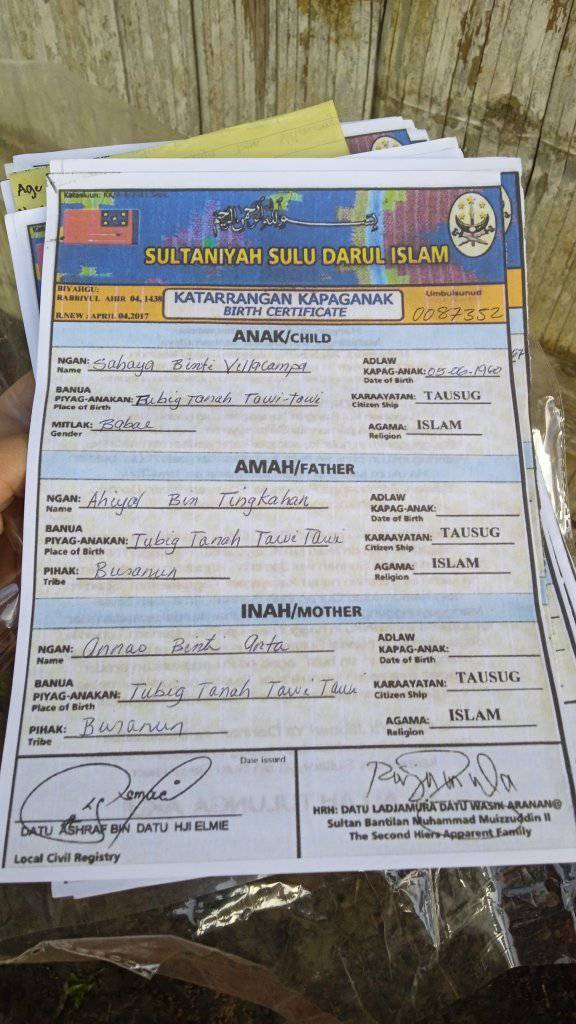 Agu
بسم الله الرحمن الرحيم
SULTANIYAH SULU DARUL ISLAM
BIYAHGU:
RABBIYUL AHIR 04, 1438
R.NEW : APRIL 04,2017
KATARRANGAN KAPAGANAK
BIRTH CERTIFICATE
Umbulsunud
0087352
ANAK/CHILD
NGAN: Sahaya Binti Villacampa
Name
ADLAW
KAPAG-ANAK: 05-06-1960
Date of Birth
BANUA
PIYAG-ANAKAN: Tubig Tanah Tawi-tawi
Place of Birth
KARAAYATAN: TAUSUG
Citizen Ship
MITLAK: Babae
Gender
AGAMA: ISLAM
Religion
AMAH/FATHER
NGAN: Ahiyal Bin Tingkahan
Name
ADLAW
KAPAG-ANAK:
Date of Birth
BANUA
PIYAG-ANAKAN: Tubig Tanah Tawi Tawi
Place of Birth
KARAAYATAN: TAUSUG
Citizen Ship
PIHAK: Buranun
Tribe
AGAMA: ISLAM
Religion
INAH/MOTHER
NGAN: Annao Binti Anta
Name
ADLAW
KAPAG-ANAK:
Date of Birth
BANUA
PIYAG-ANAKAN: Tubig Tanah Tawi Tawi
Place of Birth
KARAAYATAN: TAUSUG
Citizen Ship
PIHAK: Buranun
Tribe
AGAMA: ISLAM
Religion
Date issued
DATU ASHRAF BIN DATU HJI ELMIE
Local Civil Registry
HRH: DATU LADJAMURA DATU WASIK ARANAN@
Sultan Bantilan Muhammad Muizzuddin II
The Second Hiers Apparent Family